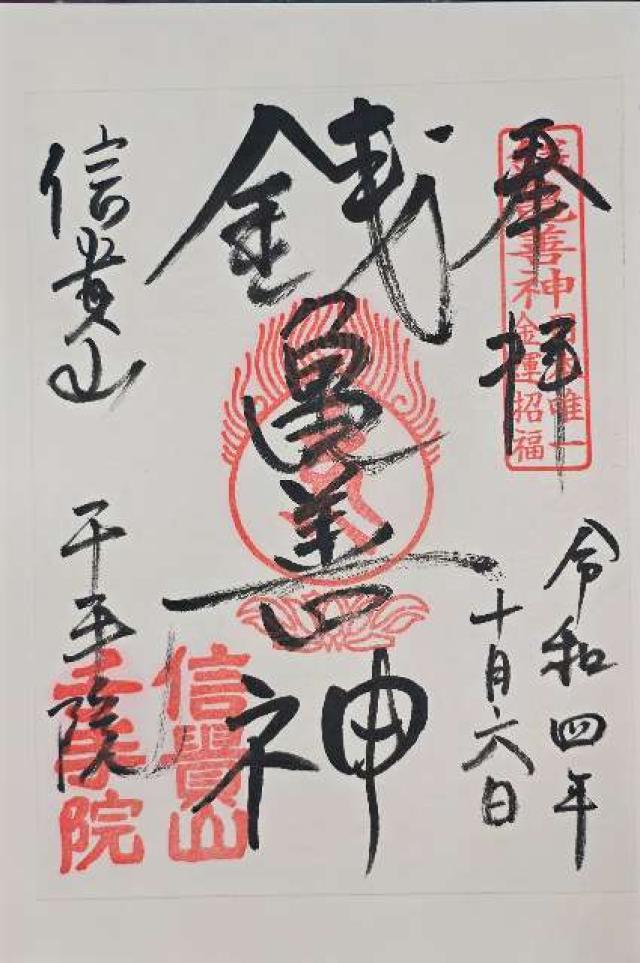 奉拝
銭亀善神
日本唯一
金運招福
令和四年
十月六日
銭亀善神
信貴山
千手院
信貴山
千手院